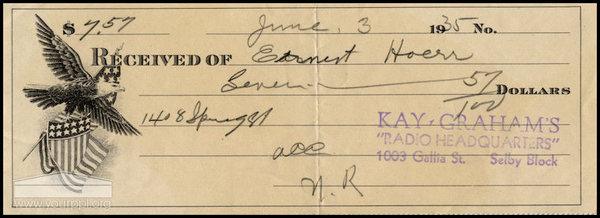 $ 7.57 June, 3 1935 No.
RECEIVED OF Ernest Hoerr
Seven 57/100 DOLLARS
1408 Spring St
KAY-GRAHAM'S
"RADIO HEADQUARTERS"
1003 Gallia St. Selby Block
acc
N. R
www.yourppl.org